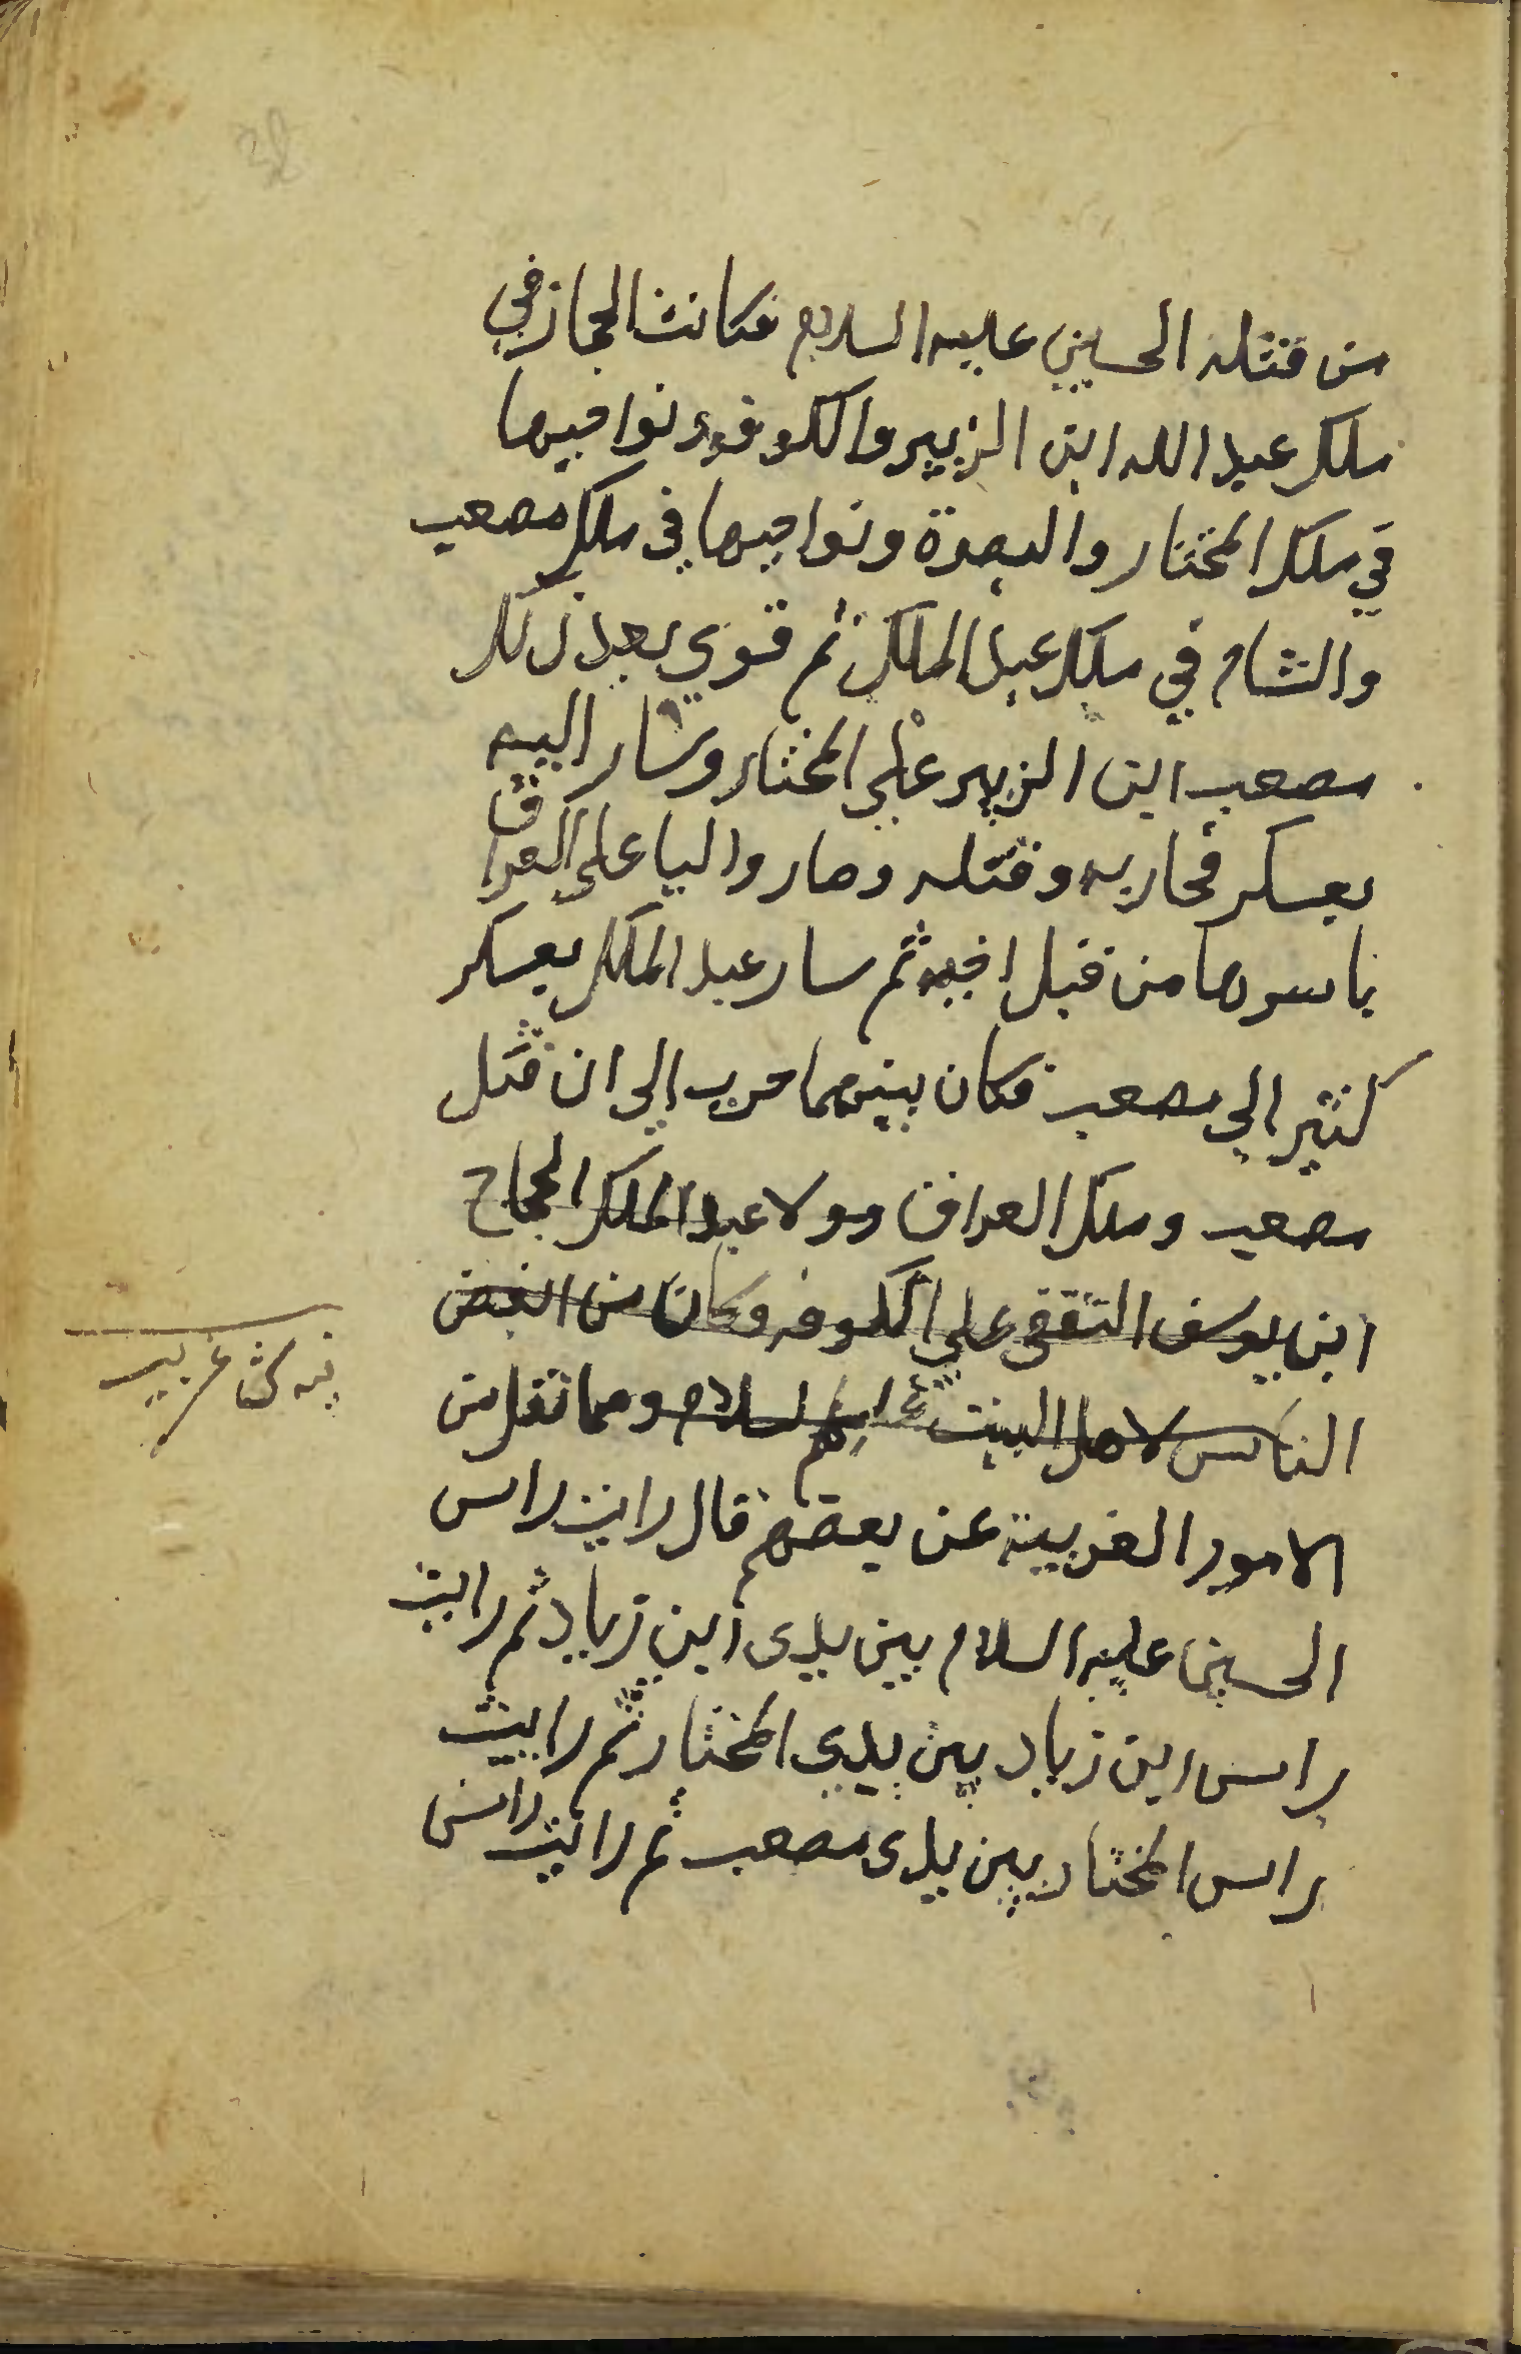 من قتله الحسين عليه السلام فكانت الحجاز في
ملك عبد الله ابن الزبير والكوفه ونواحيها
في ملك المختار والبصرة ونواحيها في ملك مصعب
والشام في ملك عبد الملك ثم قوي بعد ذلك
مصعب ابن الزبير علي المختار وسار اليه
بعسكر فحاربه وقتله وصار واليا علي العراق
باسرها من قبل اخيه ثم سار عبد الملك بعسكر
كثير الي مصعب فكان بينهما حرب الي ان قتل
مصعب وملك العراق وولا عبد الملك الحجاج
ابن يوسف الثقفي علي الكوفه وكان من ابغض
الناس لاهل البيت عليهم السلام ومما نقل من
الامور الغريبة عن بعضهم قال رايت راس
الحسين عليه السلام بين يدي ابن زياد ثم رايت
راس ابن زياد بين يدي المختار ثم رايت
راس المختار بين يدي مصعب ثم رايت راس
غريب